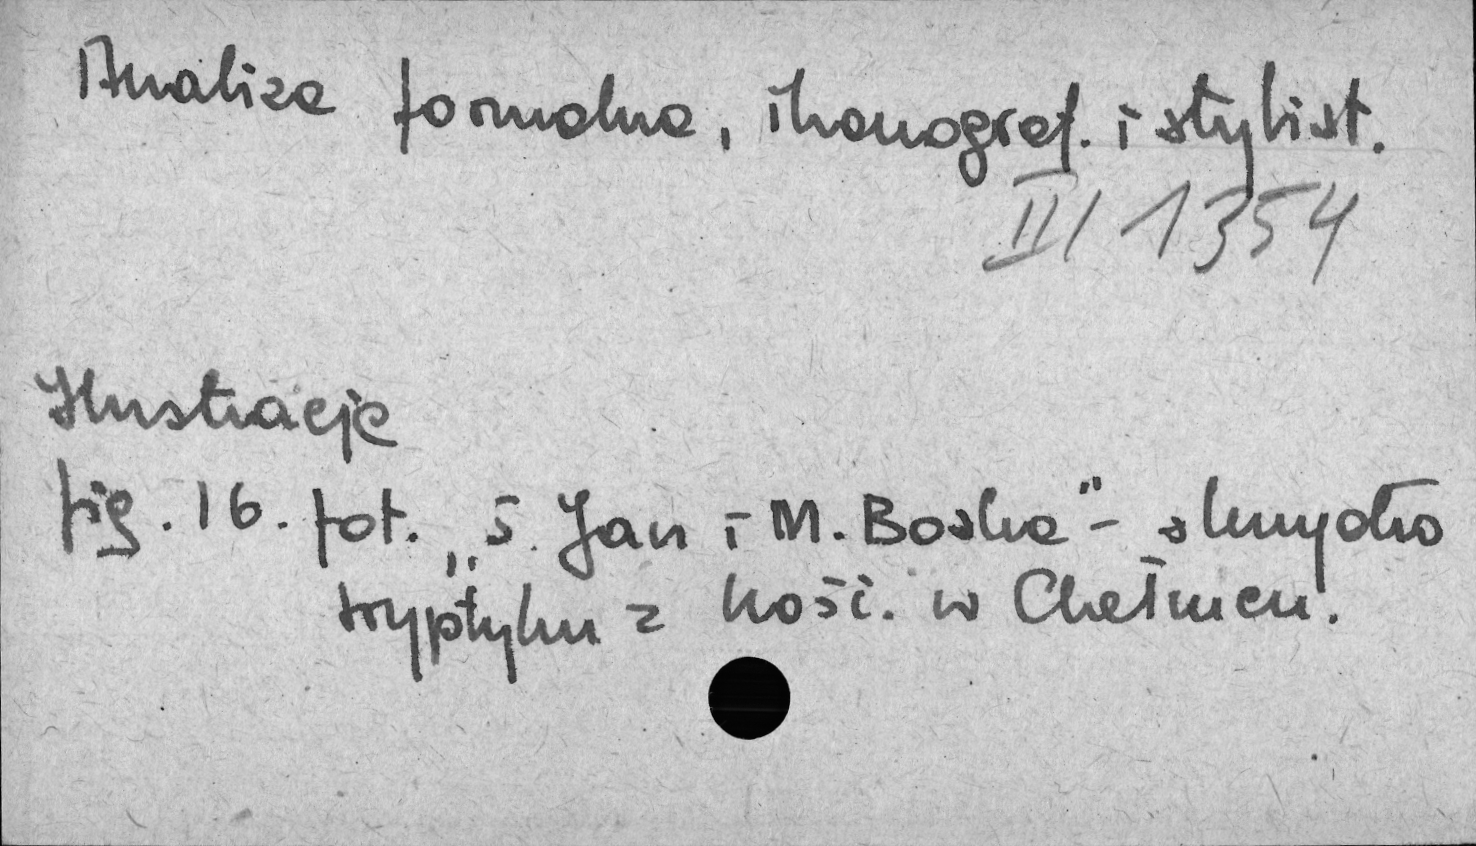 Analiza formalna, ikonograf. i stylist.
III 1354
Ilustracje
fig. 16. fot. „ś. Jan i M. Boska" – skrzydło
tryptyku z kość. w Chełmcu.